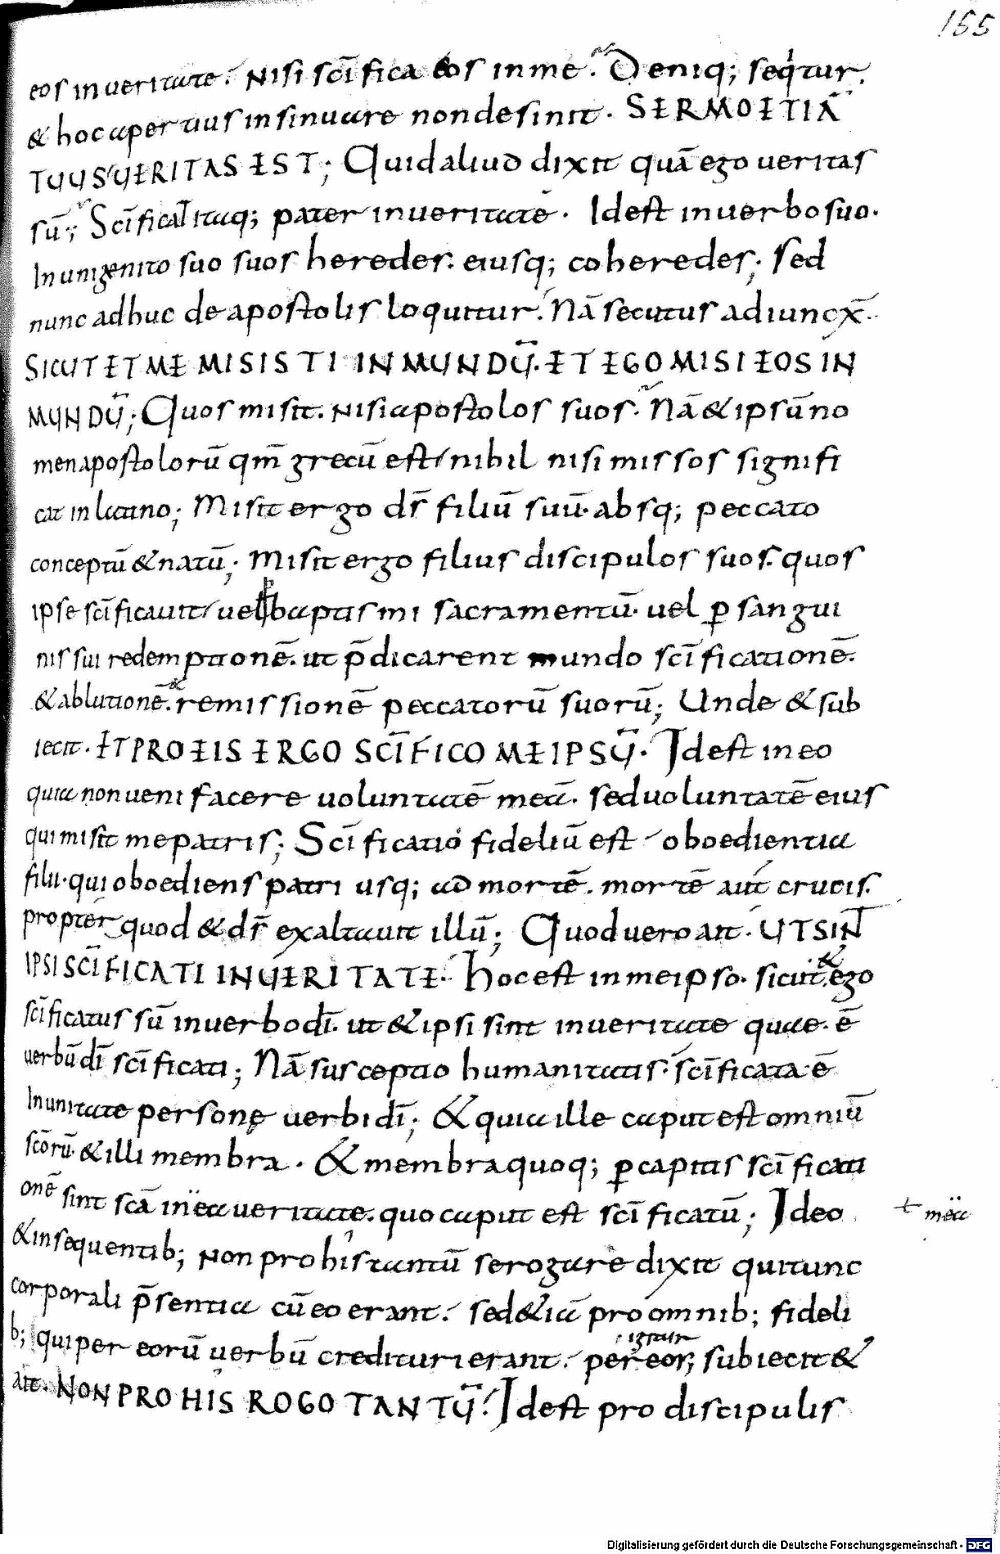 155
eos in ueritate. Nisi scīfica eos in me. Deniq; seqitur.
& hoc apertius insinuare non desinit. SERMO ETIĀ
TUUS UERITAS EST; Quid aliud dixit quā ego ueritas
sū; Scīfica itaq; pater in ueritate. Idest in uerbo suo.
In unigenito suo suos heredes. eiusq; coheredes; sed
nunc adhuc de apostolis loquitur. Nā secutus adiuncx̄.
SICUT ET ME MISISTI IN MUNDŪ. ET EGO MISI EOS IN
MUNDŪ; Quos misit. nisi apostolos suos. Nā & ipsū no
men apostolorū qm̄ grecū est nihil nisi missos signifi
cat in latino; Misit ergo ds̄ filiū suū absq; peccato
conceptū & natū; Misit ergo filius discipulos suos. quos
ipse scīficauit uel baptismi sacramentū. uel p̱ sangui
nis sui redemptionē. ut p̄dicarent mundo scīficationē.
& ablutionē. & remissionē peccatorū suorū; Unde & sub
iecit. ET PRO EIS ERGO SCĪFICO ME IPSŪ. Idest in eo
quia non ueni facere uoluntatē meā. sed uoluntatē eius
qui misit me patris; Scīficatio fideliū est oboedientia
filii. qui oboediens patri usq; ad mortē. mortē aut crucis.
propter quod & ds̄ exaltauit illū; Quod uero ait. UT SINT
IPSI SCĪFICATI IN UERITATE. Hoc est in me ipso. sicut & ego
scīficatus sū in uerbo dī. ut & ipsi sint in ueritate quae. ē
uerbū dī scīficati; Nā susceptio humanitatis. scīficata ē
In unitate personę uerbi dī; & quia ille caput est omniū
scōrū. & illi membra. & membra quoq; p̱ capitis scīficati
onē sint scā in ea ueritate. quo caput est scīficatū; Ideo
meā
& in sequentib; Non pro his tantū se rogare dixit qui tunc
corporali p̄sentia cū eo erant. sed & iā pro omnib; fideli
b; qui per eorū uerbū credituri erant.
igitur
per eor; subiecit &
ait. NON PRO HIS ROGO TANTŪ. Idest pro discipulis
Digitalisierung gefördert durch die Deutsche Forschungsgemeinschaft - DFG